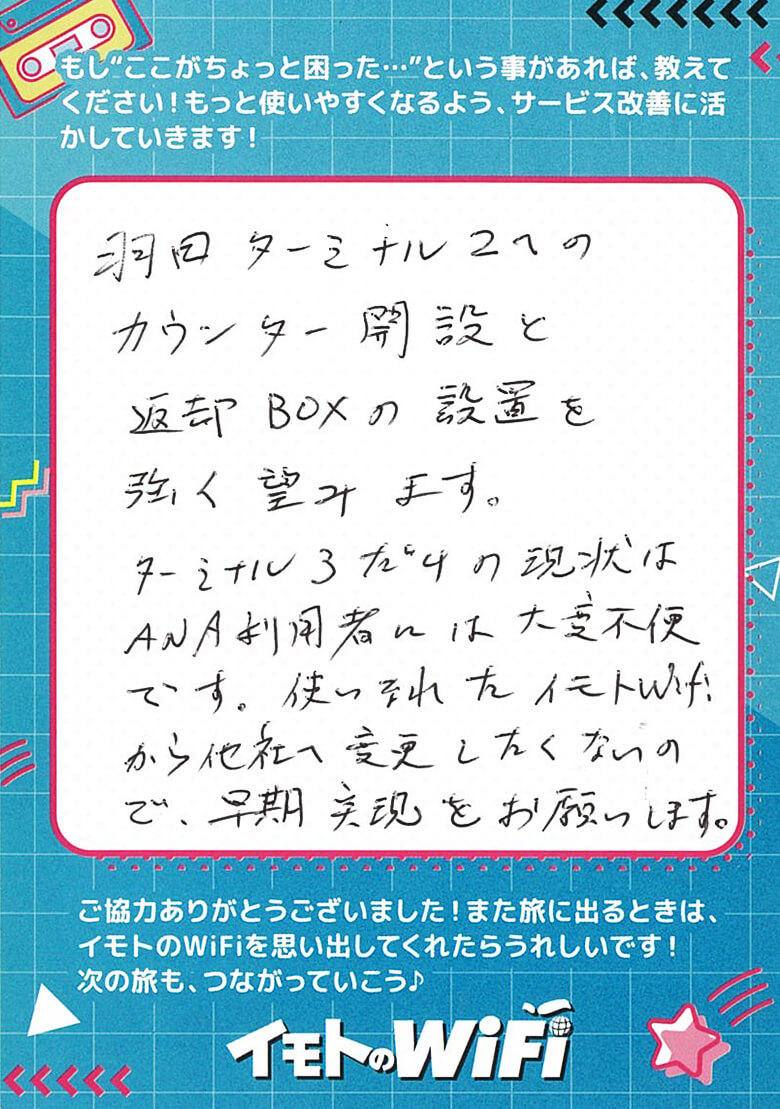 もし“ここがちょっと困った…”という事があれば、教えて
ください！もっと使いやすくなるよう、サービス改善に活
かしていきます！
羽田ターミナル2への
カウンター開設と
返却BOXの設置を
強く望みます。
ターミナル3だけの現状は
ANA利用者には大変不便
です。使いなれたイモトWifi
から他社へ変更したくないの
で、早期実現をお願いします。
ご協力ありがとうございました！また旅に出るときは、
イモトのWiFiを思い出してくれたらうれしいです！
次の旅も、つながっていこう♪
イモトのWiFi